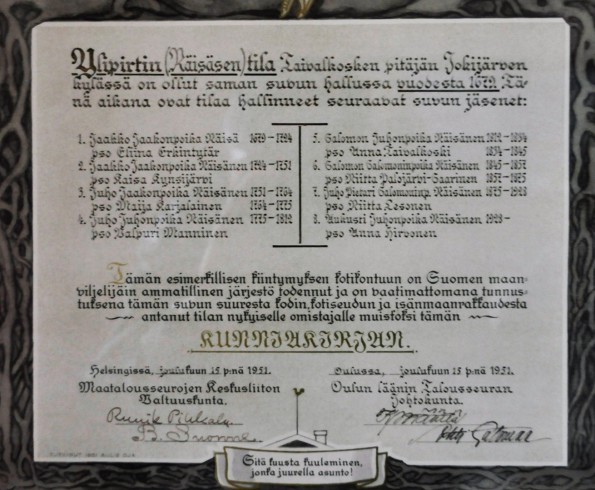 Ylipirtin (Räisäsen) tila Taivalkosken pitäjän Jokijärven
kylässä on ollut saman suvun hallussa vuodesta 1679. Tä-
nä aikana ovat tilaa hallinneet seuraavat suvun jäsenet:
1. Jaakko Jaakonpoika Räisä 1679-1724
pso Eliina Erkintytär
2. Jaakko Jaakonpoika Räisänen 1724-1751
pso Kaisa Kynsijärvi
3. Juho Jaakonpoika Räisänen 1751-1764
pso Maija Karjalainen 1764-1775
4. Juho Juhonpoika Räisänen 1775-1812
pso Valpuri Manninen
5. Salomon Juhonpoika Räisänen 1812-1834
pso Anna Taivalkoski 1834-1845
6. Salomon Salomoninpoika Räisänen 1845-1857
pso Riitta Palojärvi-Saarinen 1857-1875
7. Juho Pieturi Salomoninp. Räisänen 1875-1928
pso Riitta Lesonen
8. Aukusti Juhonpoika Räisänen 1928-
pso Anna Hirvonen
Tämän esimerkillisen kiintymyksen kotikontuun on Suomen maan-
viljelijäin ammatillinen järjestö todennut ja on vaatimattomana tunnus-
tuksena tämän suvun suuresta kodin, kotiseudun ja isänmaanrakkaudesta
antanut tilan nykyiselle omistajalle muistoksi tämän
KUNNIAKIRJAN.
Helsingissä, joulukuun 15 p:nä 1951.
Maatalousseurojen Keskusliiton
Valtuuskunta.
Oulussa, joulukuun 15 p:nä 1951.
Oulun läänin Talousseuran
Johtokunta.
Sitä kuusta kuuleminen,
jonka juurella asunto!